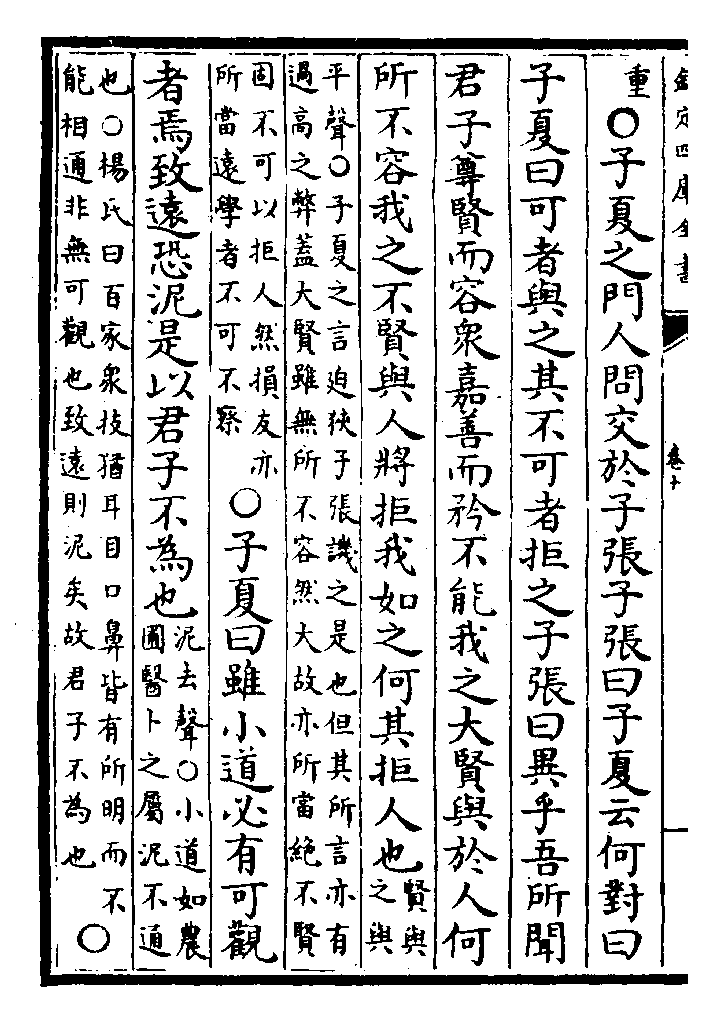 欽定四庫全書
卷十
重○子夏之門人問交於子張子張曰子夏云何對曰
子夏曰可者與之其不可者拒之子張曰異乎吾所聞
君子尊賢而容衆嘉善而矜不能我之大賢與於人何
所不容我之不賢與人將拒我如之何其拒人也
賢與
之與
平聲○子夏之言迫狹子張譏之是也但其所言亦有
過高之弊蓋大賢雖無所不容然大故亦所當絶不賢
固不可以拒人然損友亦
所當遠學者不可不察
○子夏曰雖小道必有可觀
者焉致遠恐泥是以君子不為也
泥去聲○小道如農
圃醫卜之屬泥不通
也○楊氏曰百家衆技猶耳目口鼻皆有所明而不
能相通非無可觀也致遠則泥矣故君子不為也
○